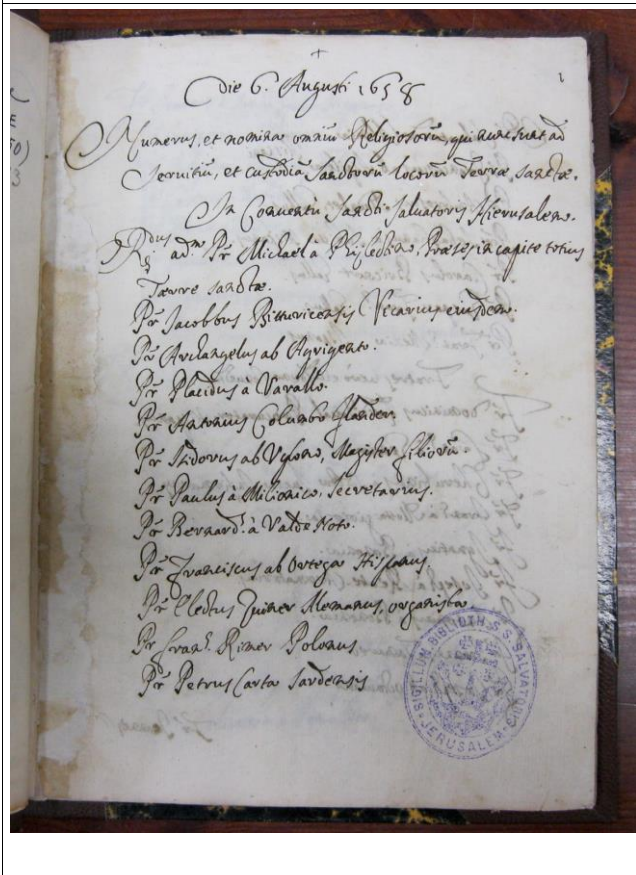 1
Die 6. Augusti 1658
Numerus, et nomina omniũ Religiosorũ, qui nunc sunt ad
Servitiũ, et custodiã Sanctorũ locorũ Terræ sanctæ.
In Conventu Sancti Salvatoris Hierusalem.
Rdus adm. Pr Michael à Præses in capite totius
Terre sanctæ.
Pr Jacobbus Bitturicensis Vicarius eiusdem.
Pr Archangelus ab Agrigento.
Pr Placidus à Varallo.
Pr Antonius Columbo
Pr Isidorus ab Magister filiorũ.
Pr Paulus à Milionico, Secretarius.
Pr Bernard. à Valde Noto.
Pr Franciscus ab Ortega Hispanus.
Pr Electus Zuiner Alemanus, organista.
Pr Fran. Rimer Polonus
Pr Petrus Carta Sardensis
SIGILLUM BIBLIOTH. S. S. SALVATORIS
JERUSALEM